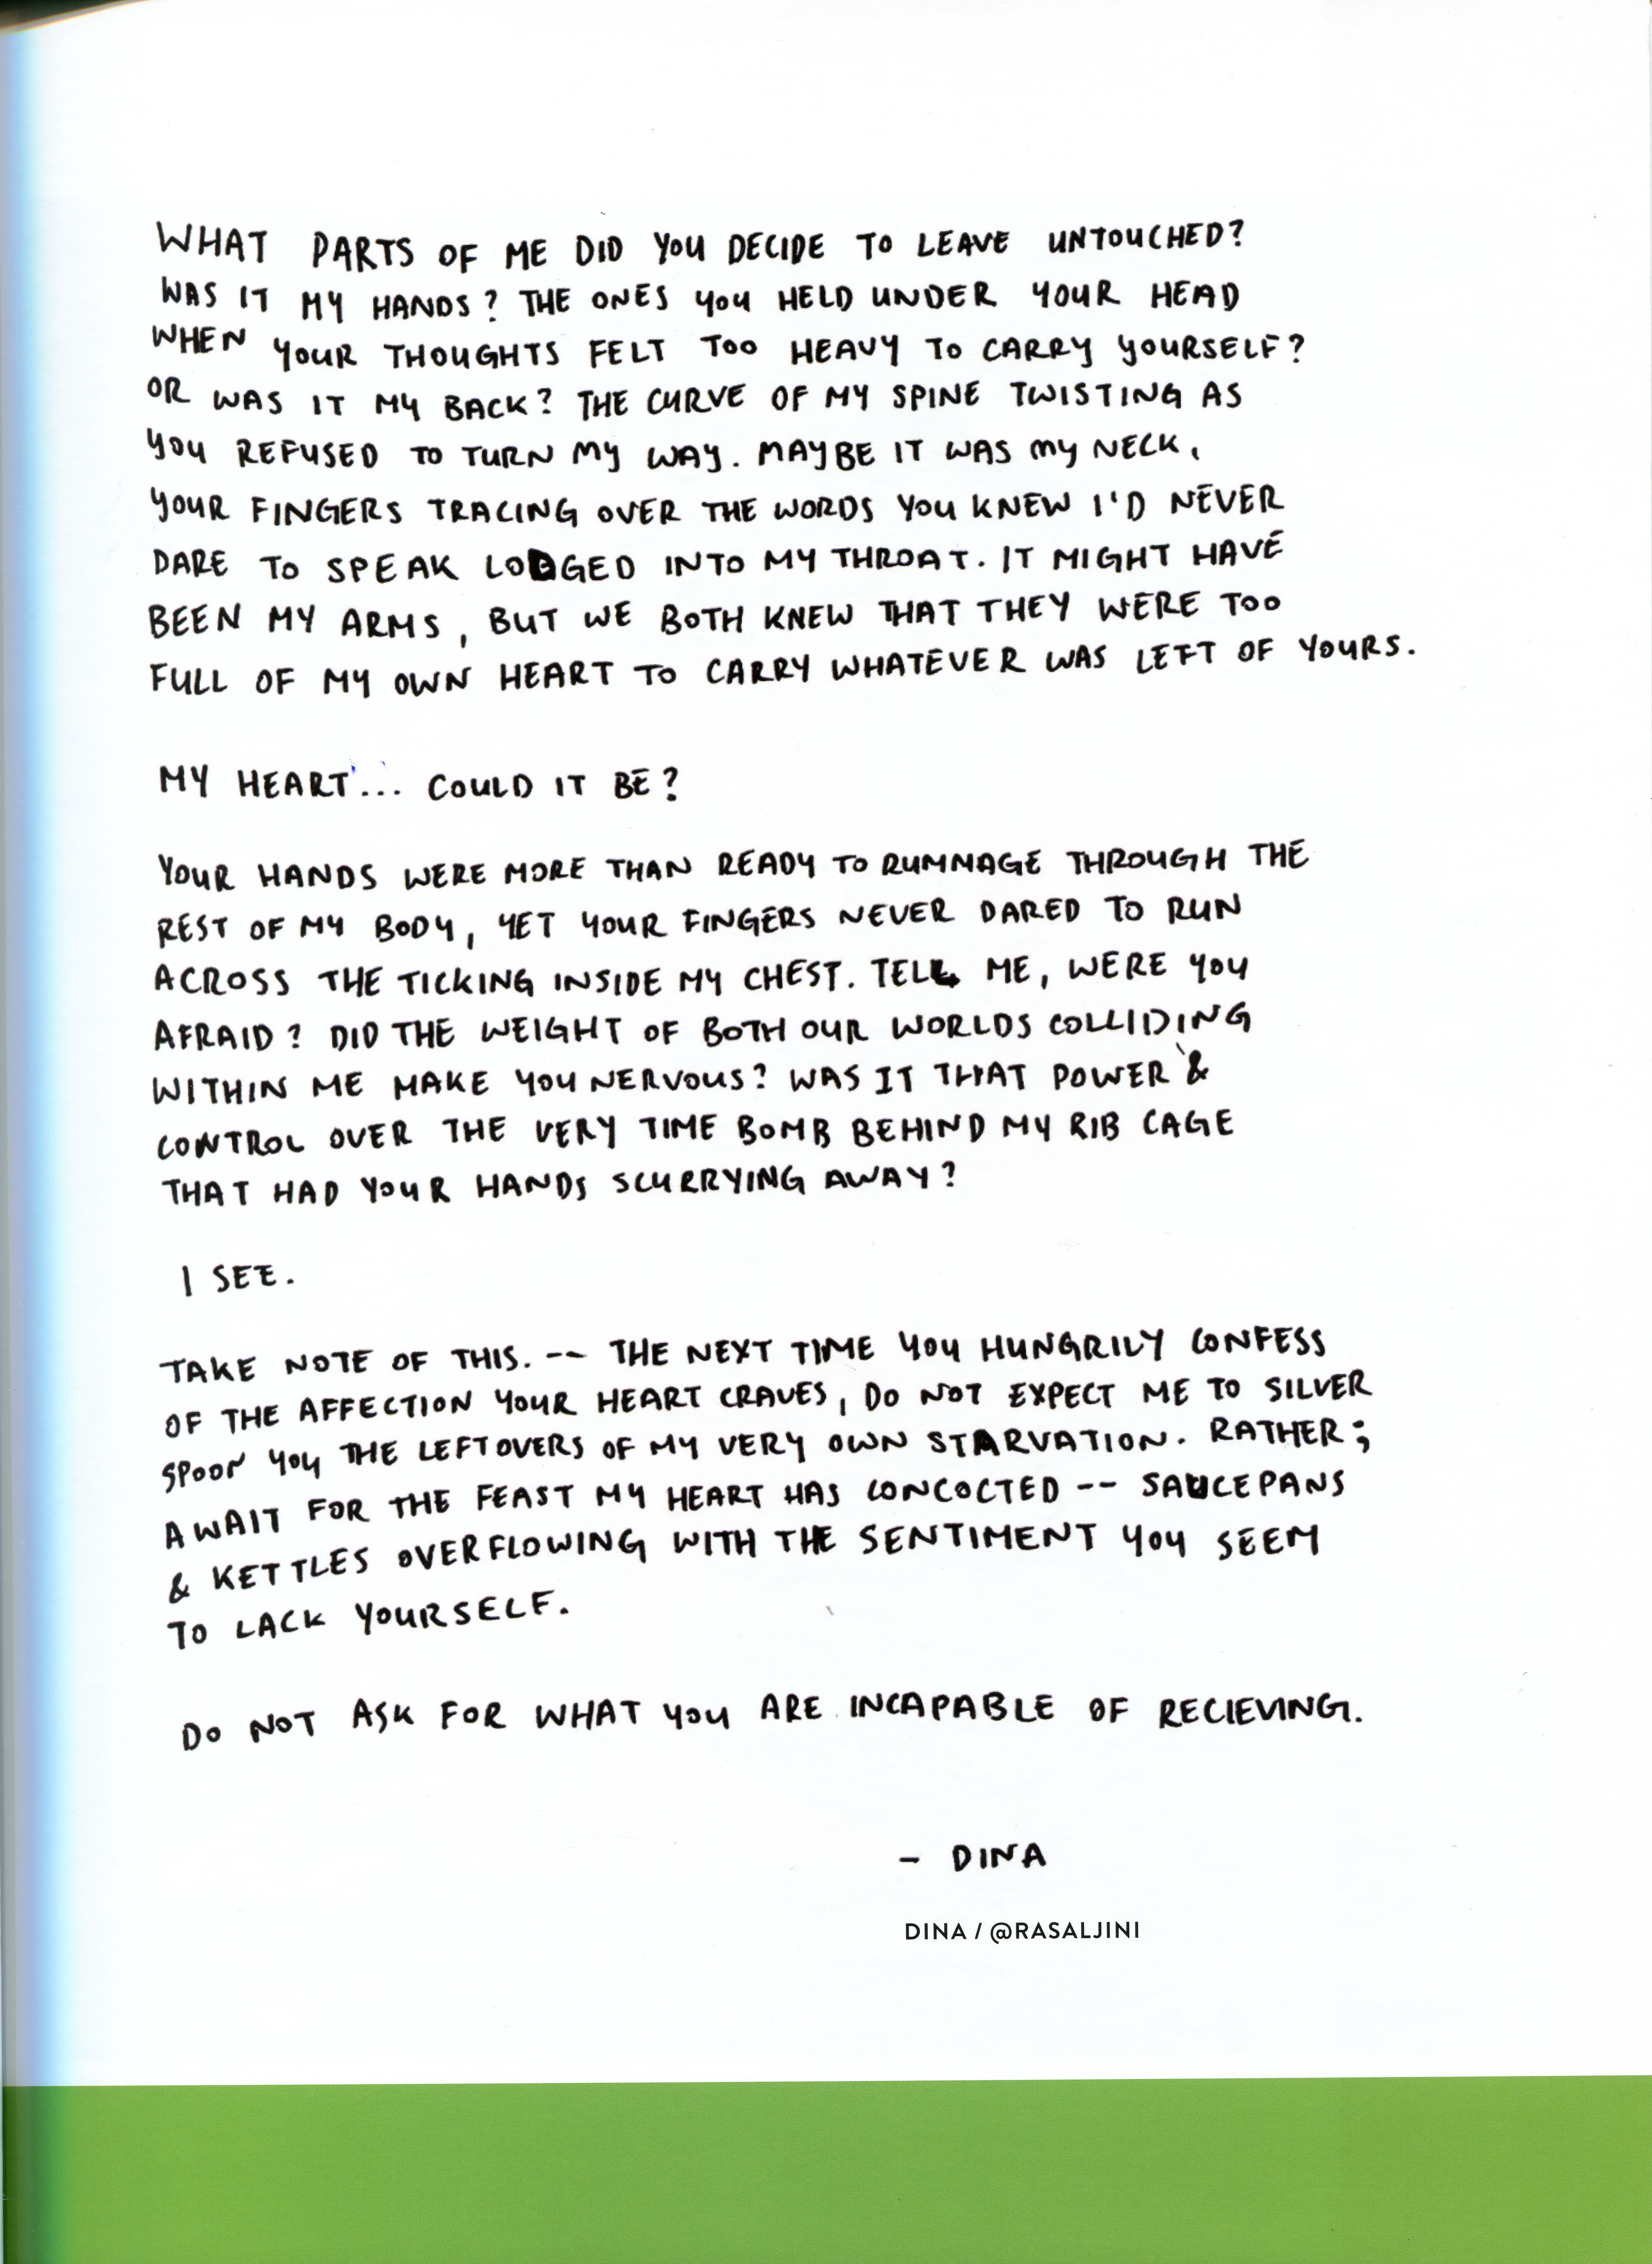 WHAT PARTS OF ME DID YOU DECIDE TO LEAVE UNTOUCHED?
WAS IT MY HANDS? THE ONES YOU HELD UNDER YOUR HEAD
WHEN YOUR THOUGHTS FELT TOO HEAVY TO CARRY YOURSELF?
OR WAS IT MY BACK? THE CURVE OF MY SPINE TWISTING AS
YOU REFUSED TO TURN MY WAY. MAYBE IT WAS MY NECK,
YOUR FINGERS TRACING OVER THE WORDS YOU KNEW I'D NEVER
DARE TO SPEAK LODGED INTO MY THROAT. IT MIGHT HAVE
BEEN MY ARMS, BUT WE BOTH KNEW THAT THEY WERE TOO
FULL OF MY OWN HEART TO CARRY WHATEVER WAS LEFT OF YOURS.
MY HEART... COULD IT BE?
YOUR HANDS WERE MORE THAN READY TO RUMMAGE THROUGH THE
REST OF MY BODY, YET YOUR FINGERS NEVER DARED TO RUN
ACROSS THE TICKING INSIDE MY CHEST. TELL ME, WERE YOU
AFRAID? DID THE WEIGHT OF BOTH OUR WORLDS COLLIDING
WITHIN ME MAKE YOU NERVOUS? WAS IT THAT POWER &
CONTROL OVER THE VERY TIME BOMB BEHIND MY RIB CAGE
THAT HAD YOUR HANDS SCURRYING AWAY?
I SEE.
TAKE NOTE OF THIS. -- THE NEXT TIME YOU HUNGRILY CONFESS
OF THE AFFECTION YOUR HEART CRAVES, DO NOT EXPECT ME TO SILVER
SPOON YOU THE LEFTOVERS OF MY VERY OWN STARVATION. RATHER;
AWAIT FOR THE FEAST MY HEART HAS CONCOCTED -- SAUCEPANS
& KETTLES OVERFLOWING WITH THE SENTIMENT YOU SEEM
TO LACK YOURSELF.
DO NOT ASK FOR WHAT YOU ARE INCAPABLE OF RECIEVING.
- DINA
DINA / @RASALJINI